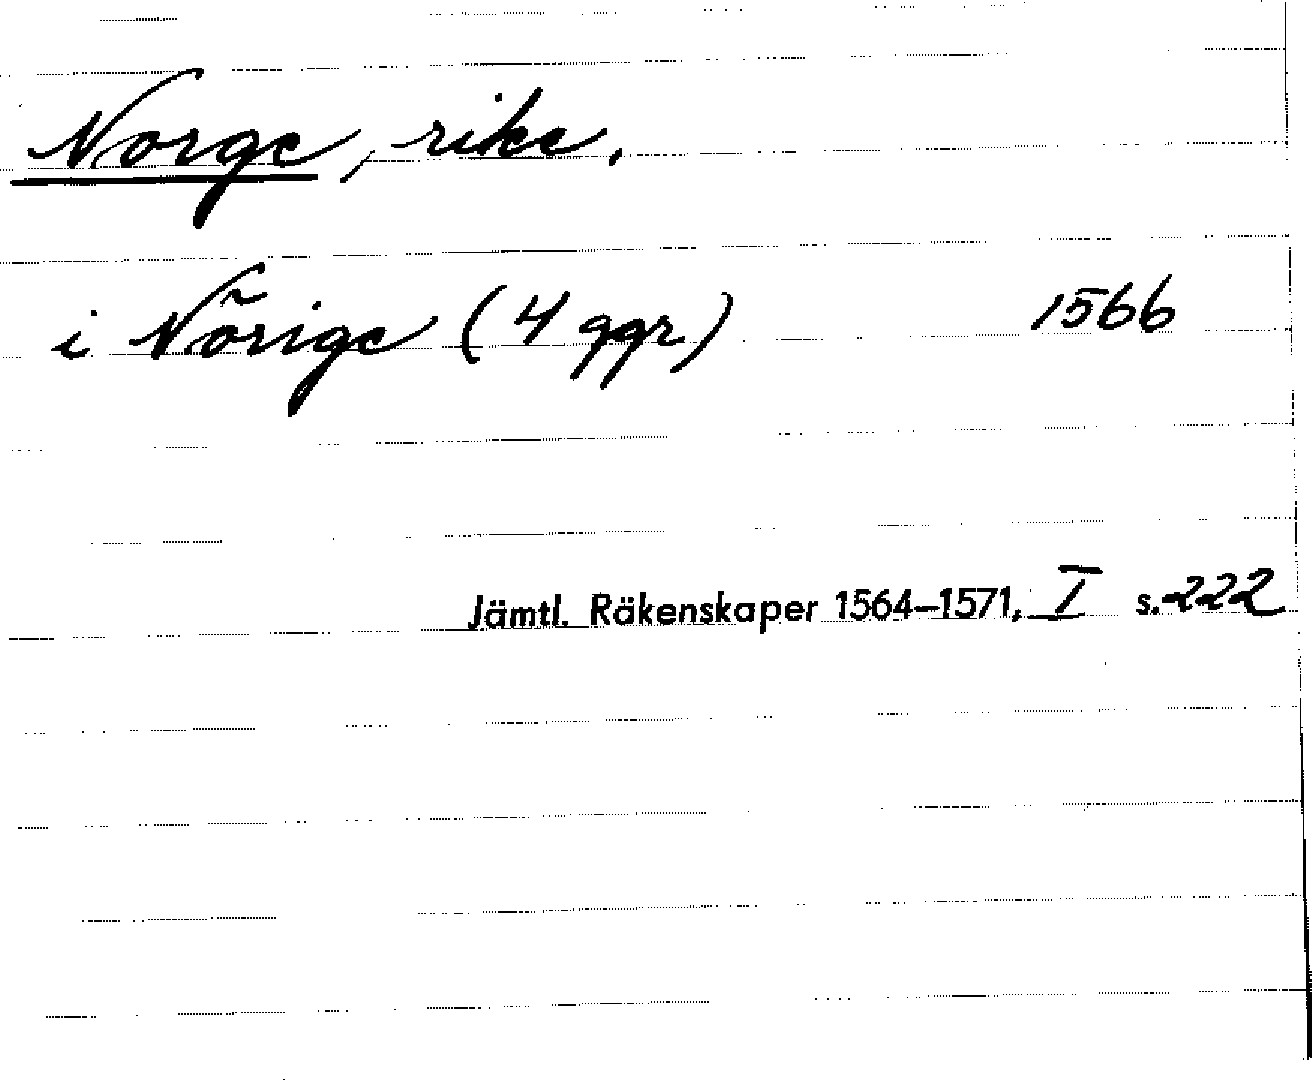 Norge, rike.
i Nõrige (4 ggr) 1566
Jämtl. Räkenskaper 1564–1571, I s. 222